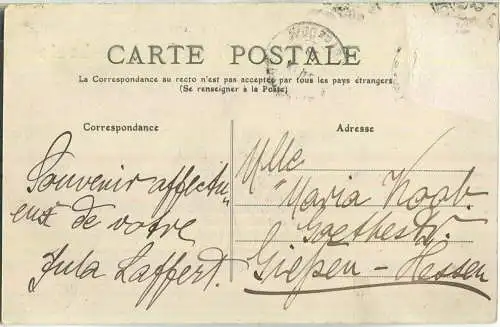 CARTE POSTALE
La Correspondance au recto n'est pas acceptée par tous les pays étrangers
(Se renseigner à la Poste)
Correspondance
Adresse
Souvenir affectu
eux de votre
Jula Laffert.
Mlle
Maria Koob.
Goethestr.
Gießen – Hessen